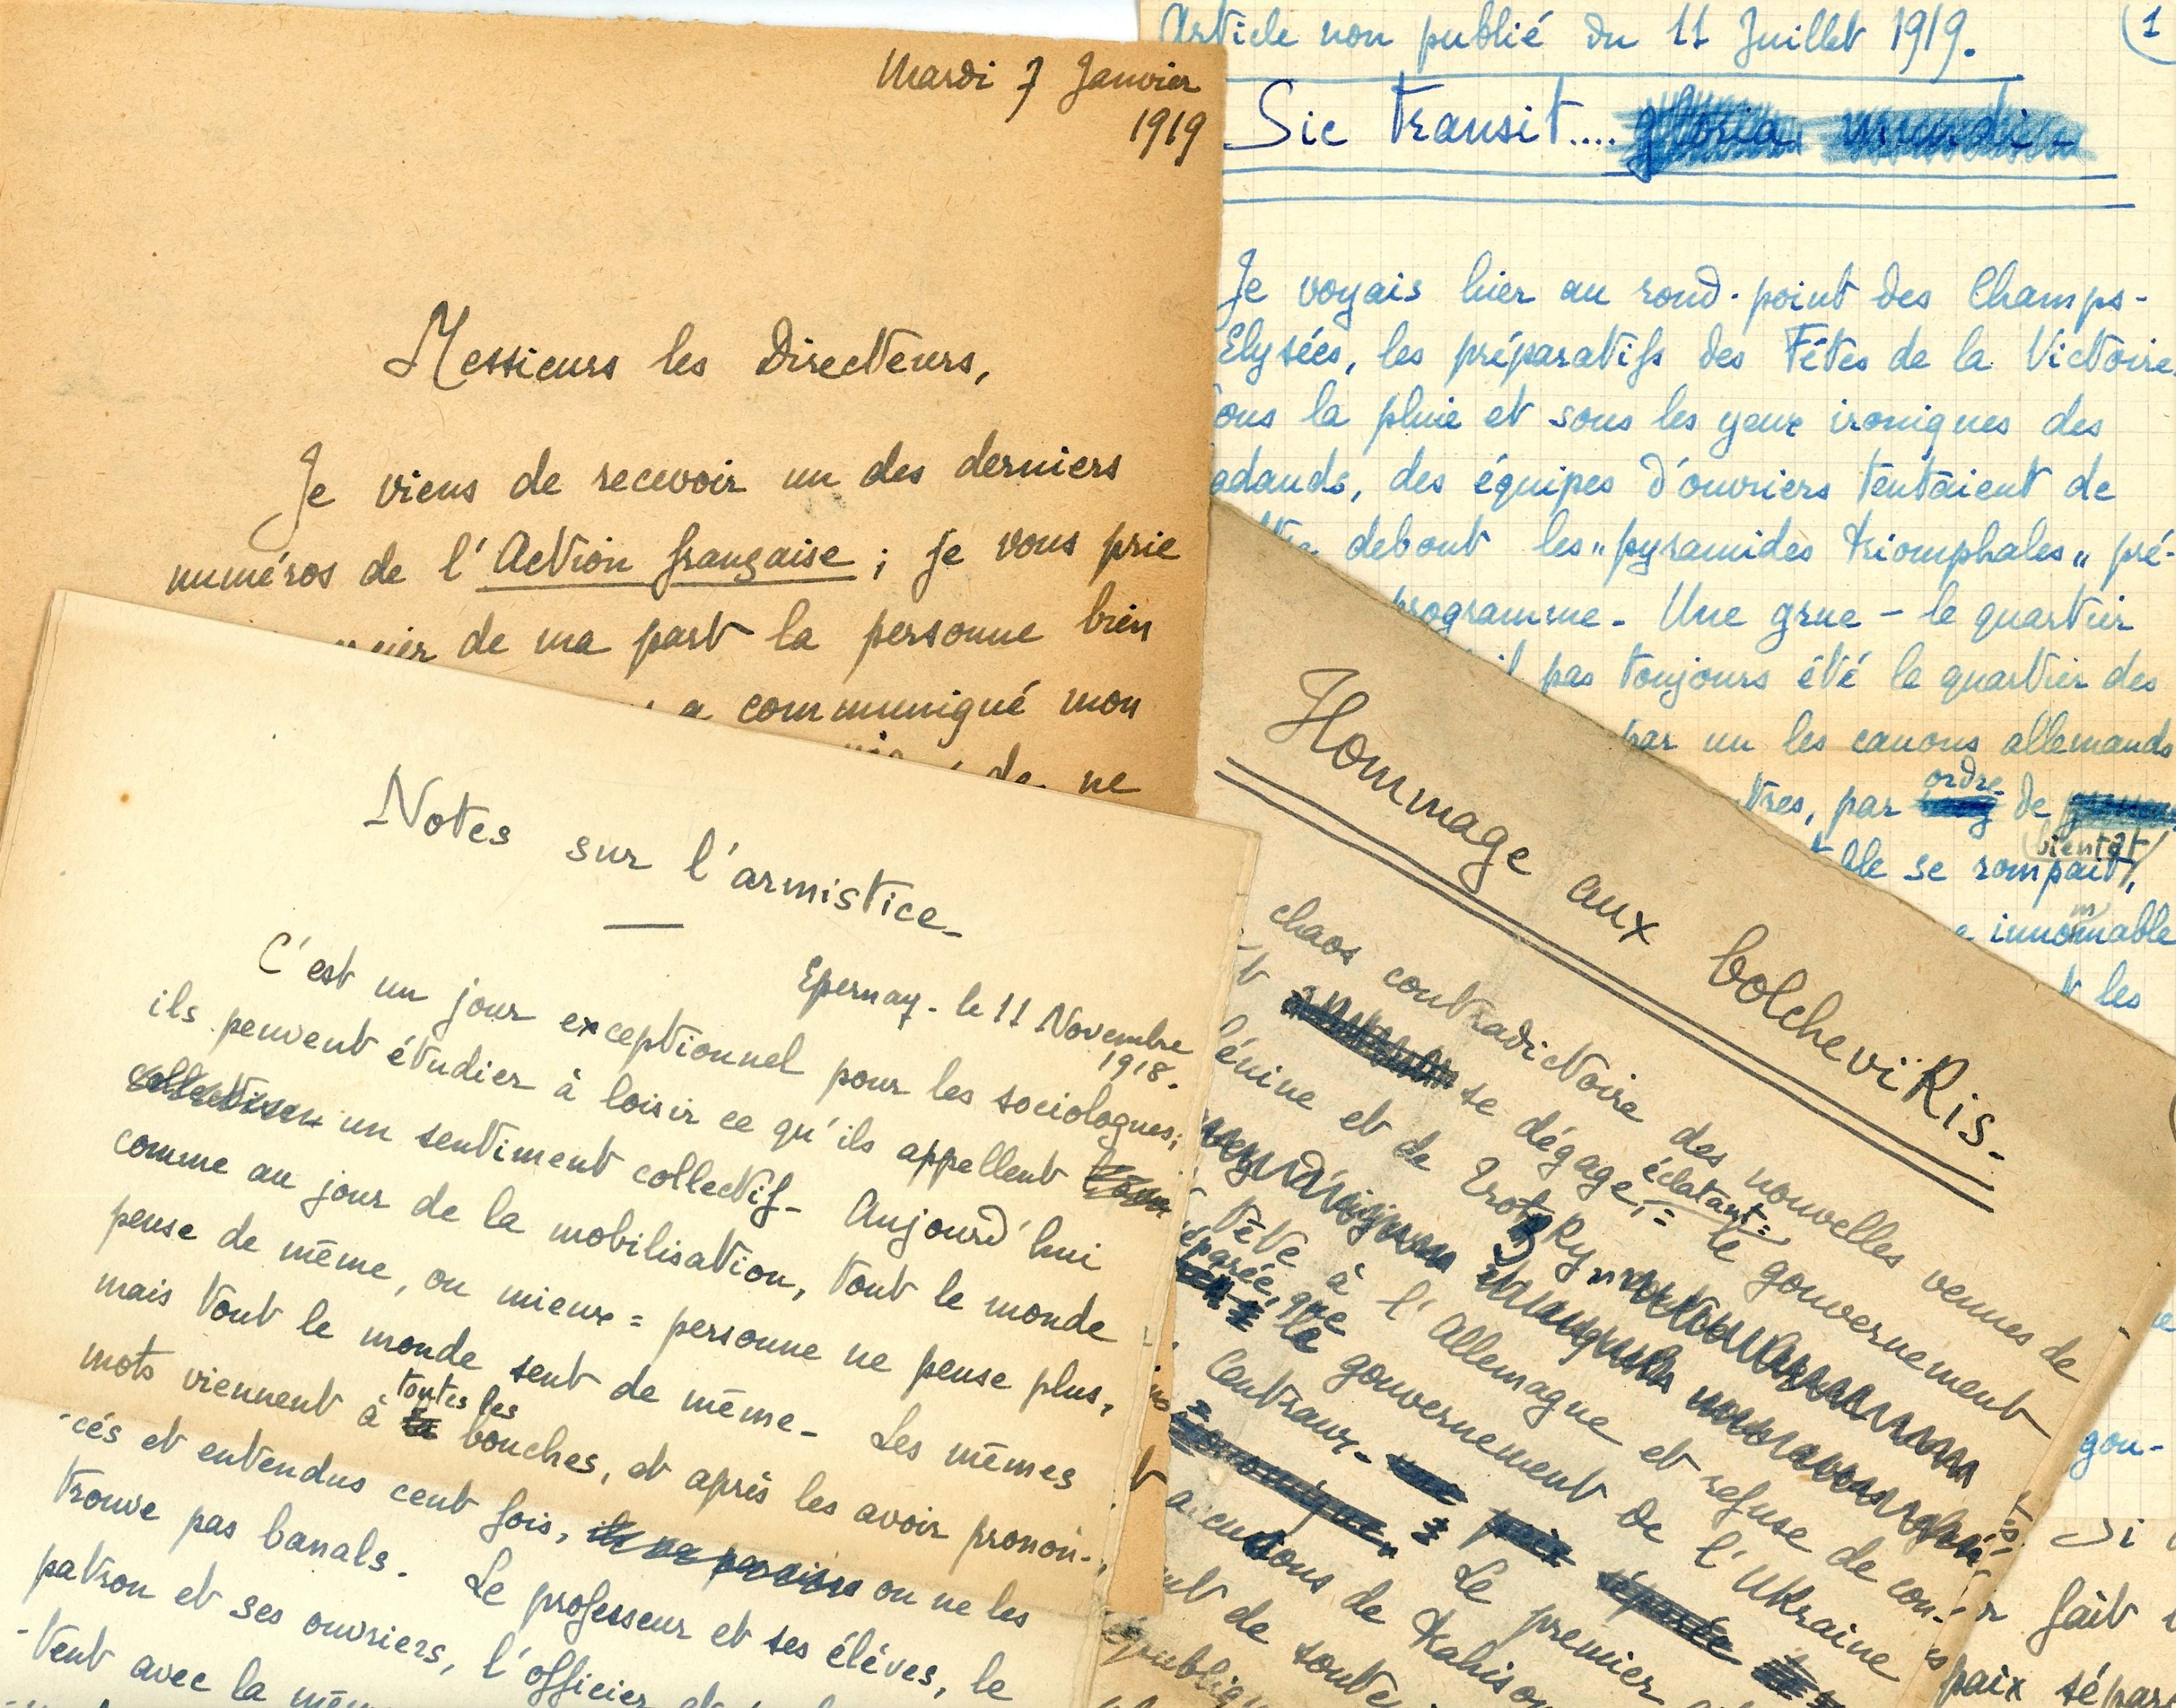 Mardi 7 Janvier
1919
Messieurs les Directeurs,
Je viens de recevoir un des derniers
numéros de l'Action française ; je vous prie
de ma part la personne bien
a communiqué mon
de ne
Article non publié du 11 Juillet 1919.
1
Sic transit.... gloria mundi -
Je voyais hier au rond-point des Champs-
Elysées, les préparatifs des Fêtes de la Victoire.
ous la pluie et sous les yeux ironiques des
adauds, des équipes d'ouvriers tentaient de
debout les "pyramides triomphales" pré-
programme - Une grue - le quartier
il pas toujours été le quartier des
par un les canons allemands
tres, par ordre de
ble se rompait, bientôt
e innommable
t les
gou-
Si
fait
paix sépar
Notes sur l'armistice -
Epernay - le 11 Novembre
1918.
C'est un jour exceptionnel pour les sociologues;
ils peuvent étudier à loisir ce qu'ils appellent
un sentiment collectif - Aujourd'hui
comme au jour de la mobilisation, tout le monde
pense de même, ou mieux = personne ne pense plus,
mais tout le monde sent de même - Les mêmes
mots viennent à toutes les bouches, et après les avoir pronon-
-cés et entendus cent fois, on ne les
trouve pas banals. Le professeur et ses élèves, le
patron et ses ouvriers, l'officier et
-tent avec la même
Hommage aux bolcheviKis -
chaos contradictoire des nouvelles venues de
t se dégage, = éclatant = le gouvernement
énine et de TrotsKy
tête à l'Allemagne et refuse de con-
éparée, que le gouvernement de l'UKraine
Centraux -
Le premier
de Kahison
nt de toute
épubliq